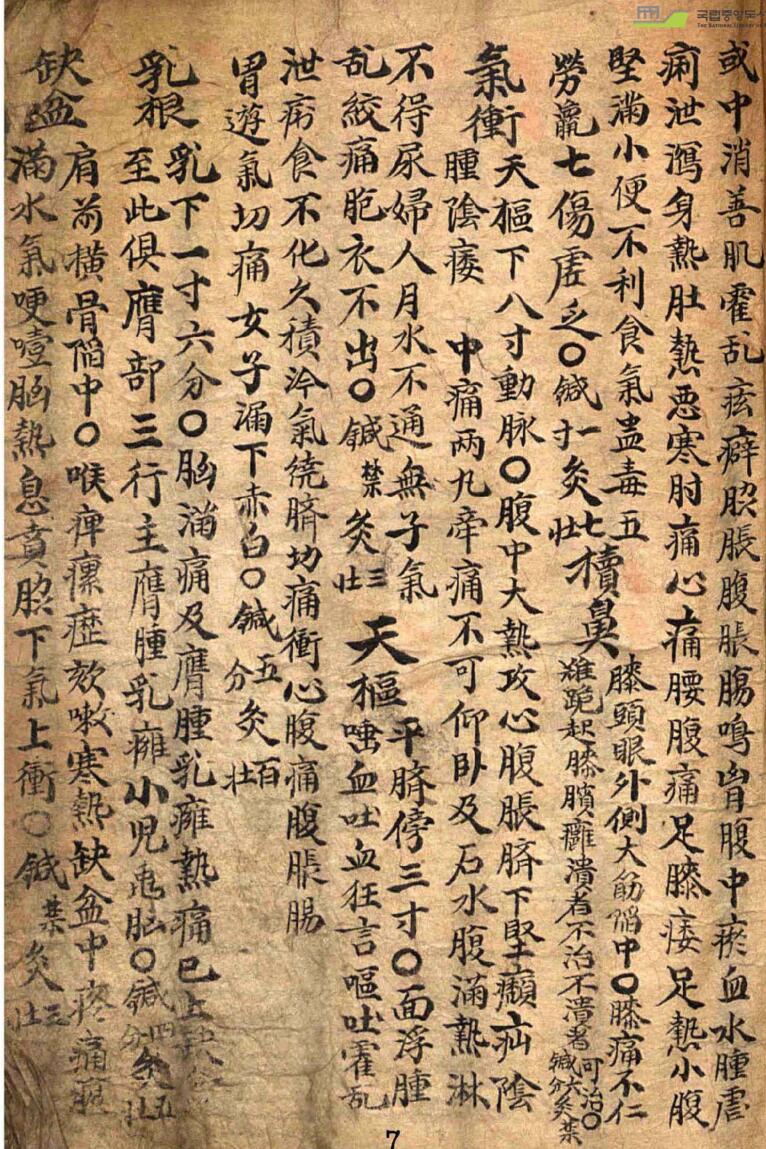 국립중앙도서
或中消善肌霍乱痃癖胗脹腹脹腸鳴胷腹中瘀血水腫瘧
痢泄瀉身熱肚熱惡寒肘痛心痛腰腹痛足膝痿足熱小腹
堅滿小便不利食氣蠱毒五
勞羸七傷虛乏〇鍼一寸灸七壯
犢鼻
膝頭眼外側大筋陷中〇膝痛不仁
難跪起膝臏癰潰者不治不潰者可治〇鍼六分灸禁
氣衝
天樞下八寸動脉〇腹中大熱攻心腹脹臍下堅㿗疝陰
腫陰痿 中痛兩九牽痛不可仰卧及石水腹滿熱淋
不得尿婦人月水不通無子氣
乱絞痛胞衣不出〇鍼禁灸三壯
天樞
平臍傍三寸〇面浮腫
唾血吐血狂言嘔吐霍乱
泄疠食不化久積冷氣繞臍切痛衝心腹痛腹脹腸
胃遊氣切痛女子漏下赤白〇鍼五分灸百壯
乳根
乳下一寸六分〇胸滿痛及膺腫乳癰熱痛已上缺
至此俱膺部三行主膺腫乳癰小児龟胸〇鍼四分灸五壯
缺盆
肩前横骨陷中〇喉痺瘰癧欬嗽寒熱缺盆中疼痛
滿水氣哽噎胸熱息賁胗下氣上衝〇鍼禁灸三壯
7